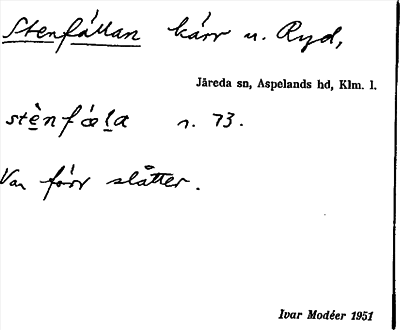 Stenfállan kärr u. Ryd,
Järeda sn, Aspelands hd, Klm. l.
stènfæla n. 73.
Var förr slåtter.
Ivar Modéer 1951